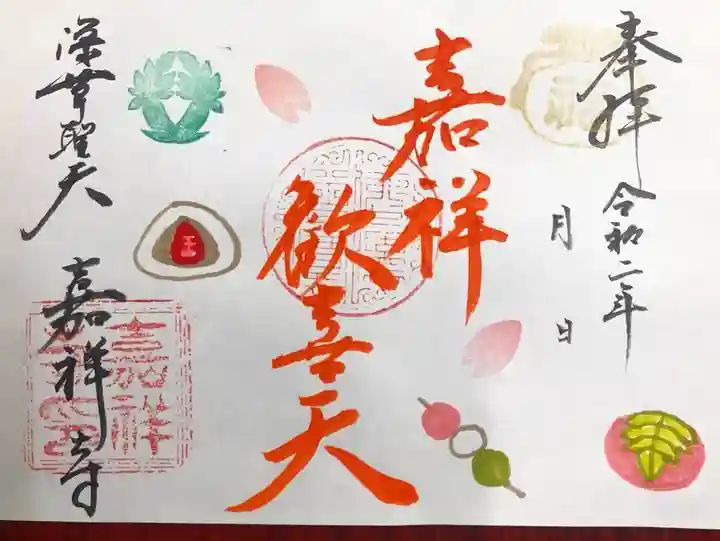 奉拝
令和二年
月 日
嘉祥
歓喜天
深草聖天
嘉祥寺